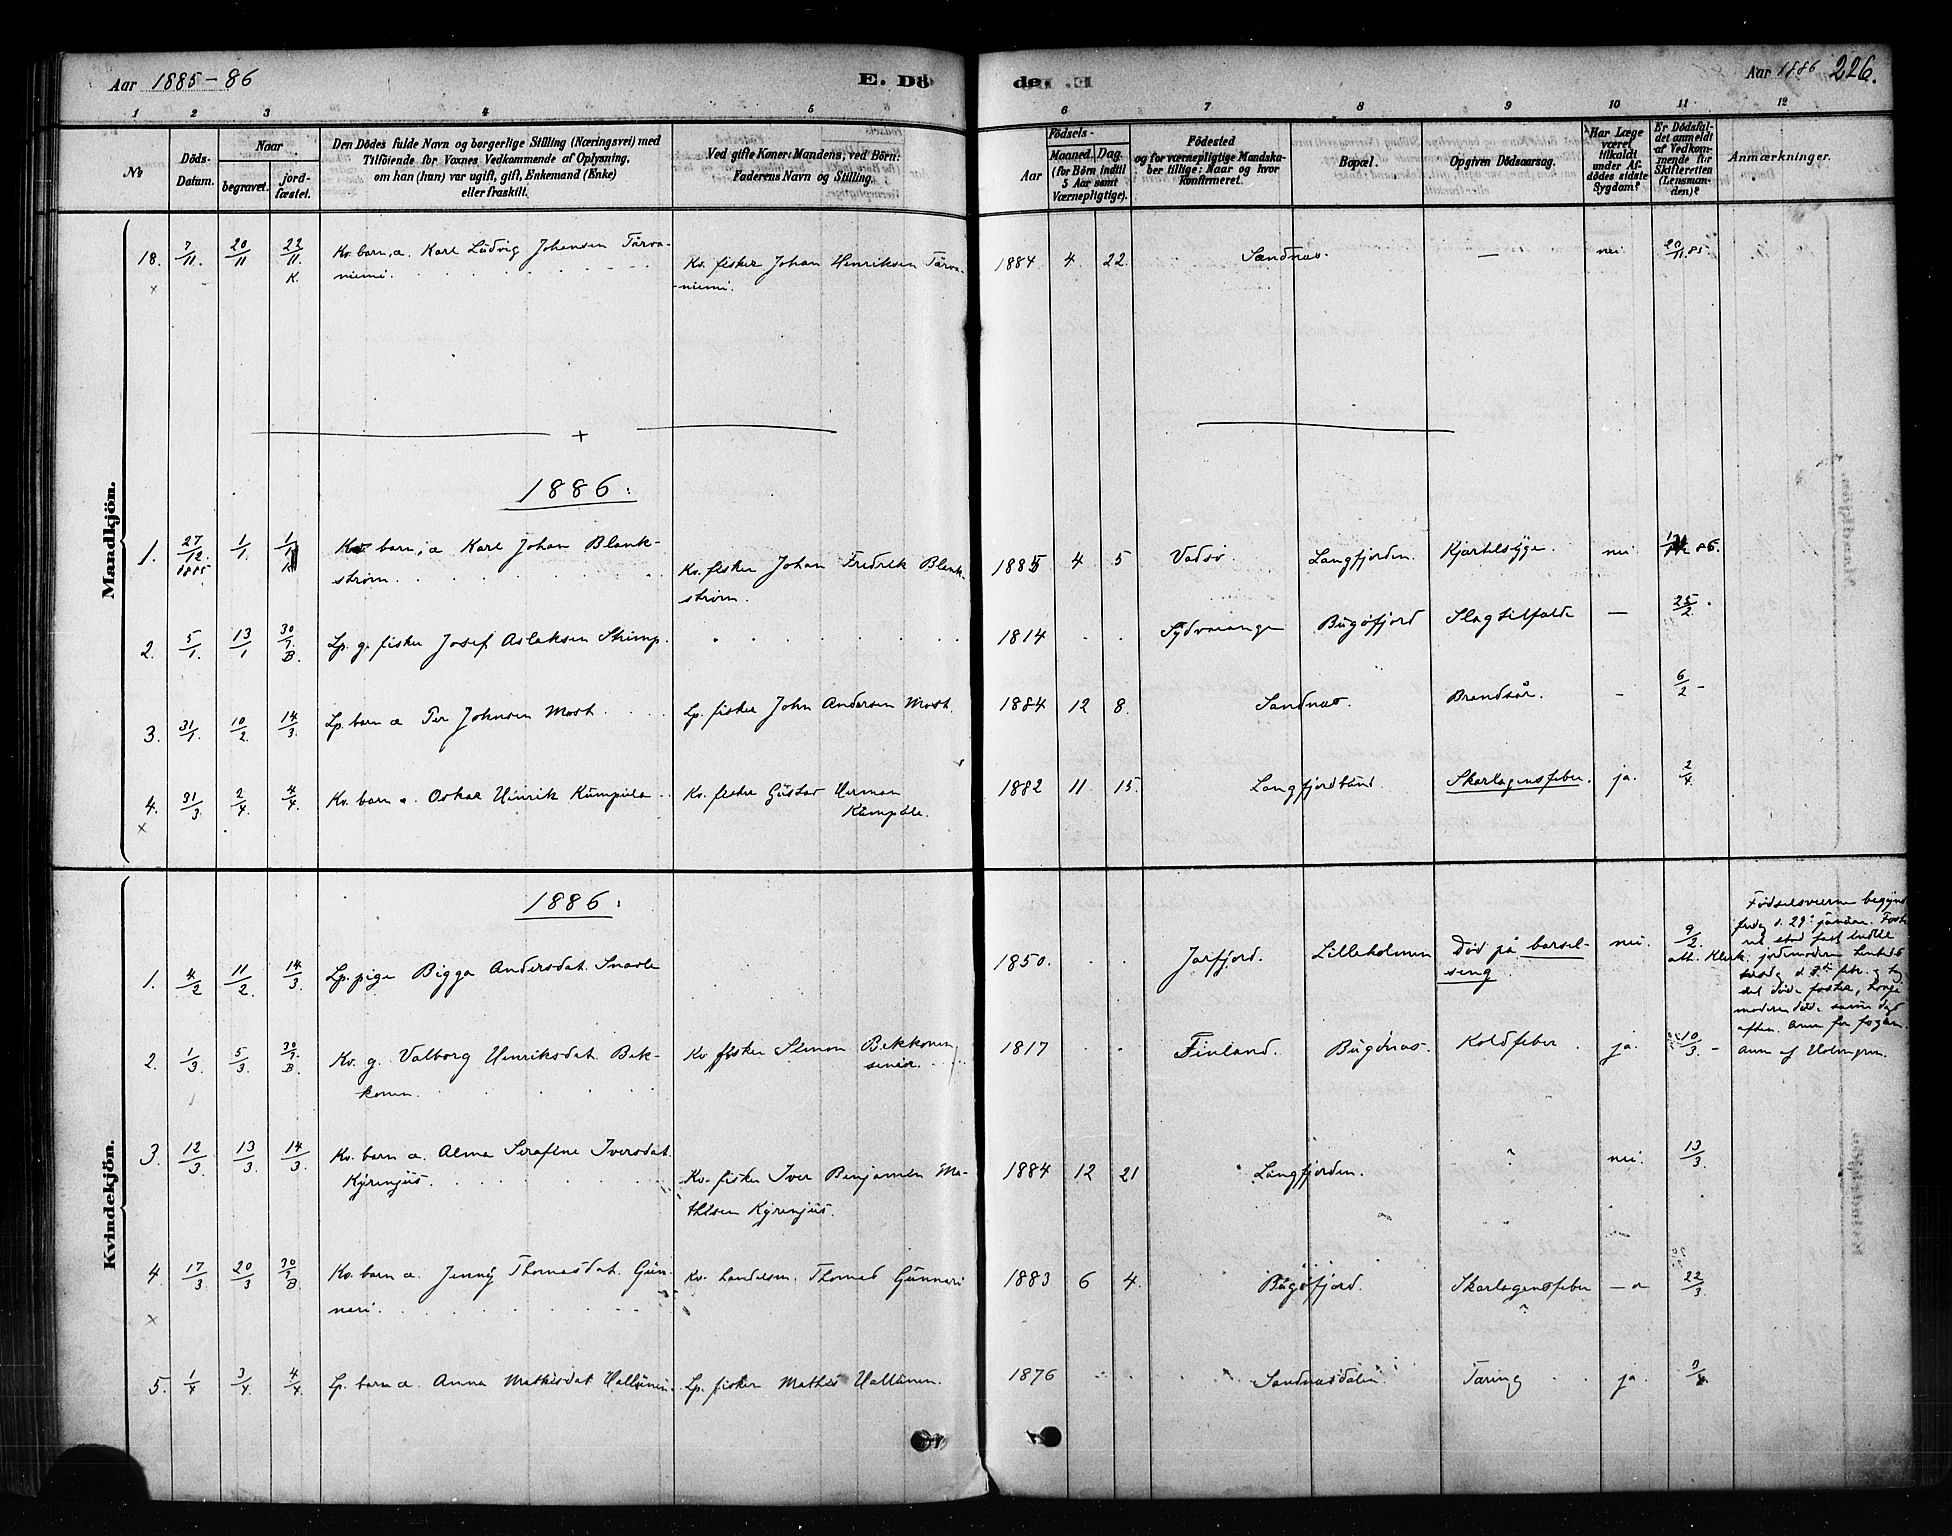 Aar 1885-86
E. Dö
de.
Aar 1886 226.
1 2 3 4 5 6 7 8 9 10 11 12
№
Döds-
Datum.
Naar
begravet.
jord-
fæstet.
Den Dödes fulde Navn og borgerlige Stilling (Næringsvei) med
Tilföiende for Voxnes Vedkommende af Oplysning,
om han (hun) var ugift, gift, Enkemand (Enke)
eller fraskilt.
Ved gifte Koner: Mandens, ved Börn:
Faderens Navn og Stilling.
Födsels-
Aar
Maaned. Dag.
(for Börn indtil
5 Aar samt
Værnepligtige).
Födested
og for værnepligtige Mandska-
ber tillige: Naar og hvor
Konfirmeret.
Bopæl.
Opgiven Dödsaarsag.
Har Læge
været
tilkaldt
under Af-
dödes sidste
Sygdom?
Er Dödsfal-
det anmeldt
af Vedkom-
mende for
Skifteretten
(Lensman-
den)?
Anmærkninger.
Mandkjön.
18. 7/11. 20/11 22/11 K. Kv. barn, a. Karl Ludvig Johansen Tärva-
niemi.
Kv. fisker Johan Henriksen Tärva-
-niemi.
1884 4 22. Sandnæs. — nei. 20/11 85.
1886:
1. 27/12 1885 1/1. 1/1 Kv. barn, a Karl Johan Blank-
strøm.
Kv. fisker Johan Fredrik Blank-
strøm.
1885 4 5 Vadsø. Langfjorden. Kjertelsyge. nei 86.
2. 5/1. 13/1 30/7. B. Lp. g. fisker Josef Aslaksen Skimp.
1814 Sydvaranger Bugöfjord Slagtilfælde — 25/2.
3. 31/1. 10/2 14/3 Lp. barn a Per Johnsen Mosh.
Lp. fisker John Andersen Mosh.
1884 12 8. Sandnæs. Brandsår. - 6/2 -
4. 31/3 2/4. 4/4. Kv. barn a. Oskar Hinrik Kumpula
Kv. fisker Gustav Herman
Kumpula.
1882 11 15. Langfjordbund Skarlagensfeber. ja. 2/4.
Kvindekjön.
1886:
1. 4/2 11/2. 14/3 Lp. pige Bigga Andersdat. Snaule
1850. Jarfjord. Lilleholmen Död på barsel-
seng. nei. 9/2.
att. Klerk.
Födselsveerne begynd
fredag d. 29. januar.
2. 1/3. 5/3. 30/7. B. Kv. g. Valborg Hinriksdat. Bek-
konen.
Kv fisker Simon Bekkonen
senior.
1817 Finland. Bugönæs. Koldfeber ja. 10/3. -
3. 12/3 13/3. 14/3. Kv. barn a. Alma Serafine Iversdat.
Kyrenjus.
Kv. fisker Iver Benjamin Ma-
thisen Kyrenjus.
1884 12 21 Langfjorden. ? nei. 13/3.
4. 17/3. 20/3 30/7 B Kv. barn a. Jenny Thomasdat. Gun-
nari.
Kv. handelsm. Thomas Gunnari
1883 6 4. Bugöfjord. Skarlagensfeber — " — 22/3
?
5. 1/4 3/4. 4/4 Lp. barn a. Anna Mathisdat Hallonen.
Lp. fisker Mathis Hallonen.
1876 Sandnæsdalen. Tæring ja.